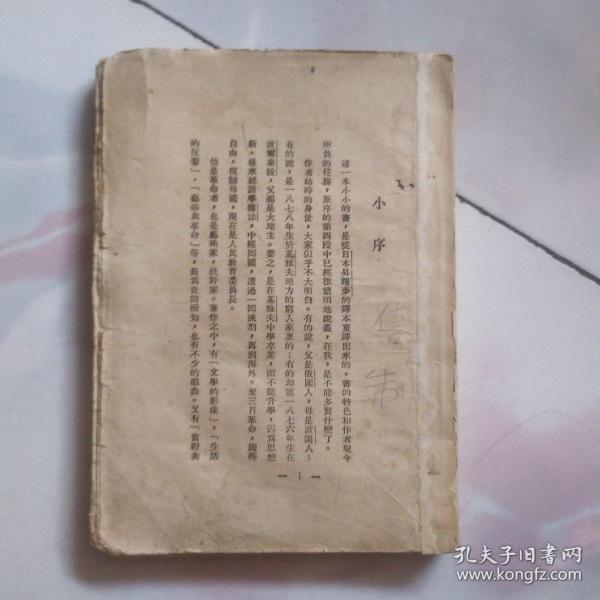 小序
這一本小小的書，是從日本昇曙夢的譯本重譯出來的。書的特色和作者現今
所負的任務，原序的第四段中已經很簡明地說盡，在我，是不能多贅什麼了。
作者幼時的身世，大家似乎不大明白。有的說，父是俄國人，母是波蘭人；
有的說，是一八七八年生於基雅夫地方的窮人家裏的；有的却道一八七六年生在
波爾泰跋，父祖是大地主。要之，是在基雅夫中學卒業，而不能升學，因為思想
新。後來就游學德法，中經回國，遭過一回流刑，再到海外。至三月革命，纔得
自由，復歸母國，現在是人民教育委員長。
他是革命者，也是藝術家，批評家。著作之中，有「文學的影像」，「生活
的反響」，「藝術與革命」等，最為世間所知，也有不少的戲曲。又有「實證美
— 1 —
孔夫子旧书网
www.kongfz.com